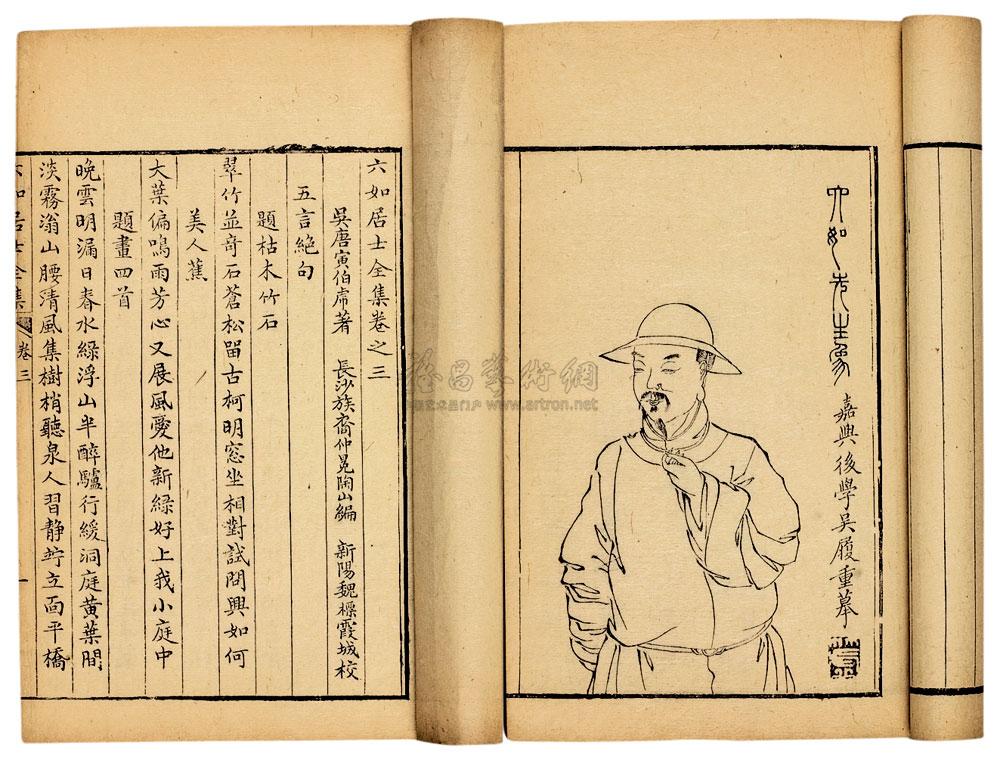 六如先生象
嘉興後學吳履重摹
六如居士全集卷之三
吳唐寅伯虎著 長沙族裔仲冕陶山編 新陽魏標霞城校
五言絕句
題枯木竹石
翠竹並奇石蒼松留古柯明窓坐相對試問興如何
美人蕉
大葉偏鳴雨芳心又展風愛他新綠好上我小庭中
題畫四首
晚雲明漏日春水綠浮山半醉驢行緩洞庭黃葉間
淡霧滃山腰淸風集樹梢聽泉人習静竚立面平橋
六如居士全集 卷三 一
雅昌藝術網
中国艺术品门户 www.artron.net